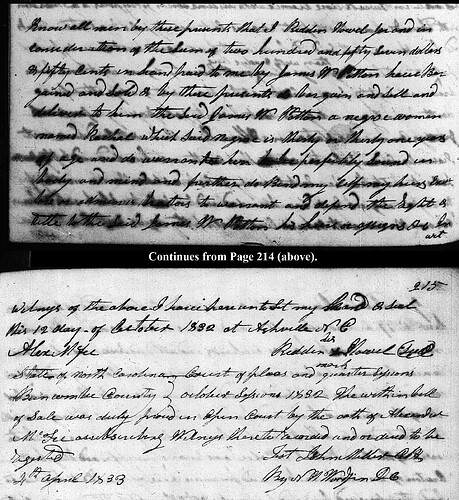 Know all men by these presents that I Reddin Howel for and in
consideration of the sum of two hundred and fifty seven dollars
& fifty Cents in hand paid to me by James W Patton have Bar
gained and sold & by these presents do bargain and sell and
deliver to him the said James W Patton a negroe woman
named Rachel which said negroe is thirty or thirty one years
of age and do warrant her to be perfectly sound in
body and mind and further do Bind my self my heirs
to warrant and defend the Right &
title to the said James W Patton his heirs assigns &c In
Continues from Page 214 (above).
215
witness of the above I have hereunto set my Hand & seal
this 12 day of October 1832 at Asheville N C
Alex McFee Reddin his x mark Howel Seal
State of North Carolina Court of pleas and quarter Sessions
Buncombe County October Sessions 1832 The within bill
of Sale was duly proved in Open Court by the oath of Alexander
McFee a subscribing Witness thereto recorded and ordered to be
registered Test John Miller Clk
4th April 1833 By N W D C